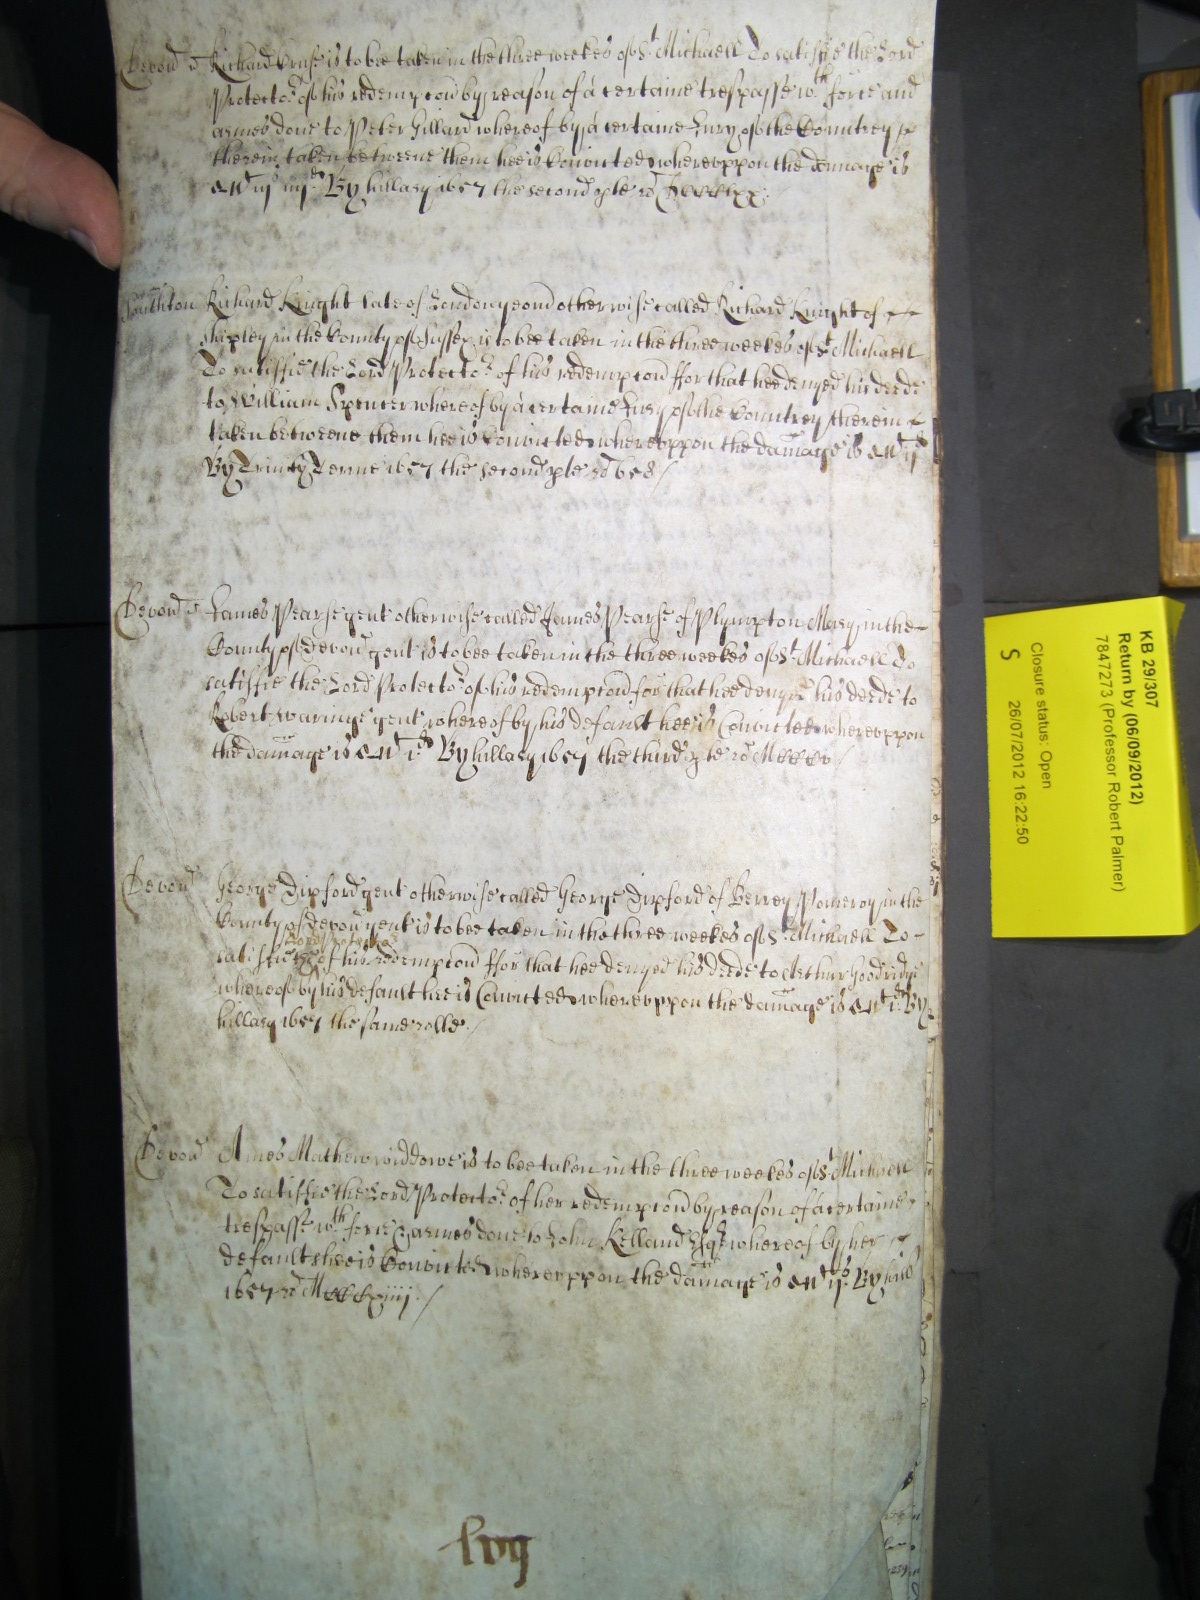 Devon Richard is to bee taken in the three weekes of St Michaell To satisfye the Lord
Protector of his redempcon by reason of a certaine trespasse wth force and
armes done to Peter Gillard whereof by a certaine Jury of the Countrey
therein taken betweene them hee is Convicted whereuppon the damage is
By Hillary 1657 the second
Southton Richard Knight late of London otherwise called Richard Knight of
Shipley in the County of Sussex is to bee taken in the three weekes of St Michaell
To satisfie the Lord Protector of his redempcon ffor that hee denyed his deede
to William Spencer whereof by a certaine Jury of the Countrey therein
taken betweene them hee is Convicted whereuppon the damage is
By Trinity Terme 1657 the second 658
Devon James Pearse gent otherwise called James Pearse of Plympton Mary in the
County of Devon gent is to bee taken in the three weekes of St Michaell To
satisfie the Lord Protector of his redempcon for that hee denyed his deede to
Robert Waringe gent whereof by his default hee is Convicted whereuppon
the damage is By Hillary 1657 the third
Devon George Dipford gent otherwise called George Dipford of Berrey Pomeroy in the
County of Devon gent is to bee taken in the three weekes of St Michaell To
satisfie the Lord Protector of his redempcon ffor that hee denyed his deede to Arthur Goodridge
whereof by his default hee is Convicted whereuppon the damage is By
Hillary 1657 the same rolle
Devon Agnes Mathew widdowe is to bee taken in the three weekes of St Michaell
To satisfie the Lord Protector of her redempcon by reason of a certaine
trespasse wth force & armes done to John Kelland Esqr whereof by her
default shee is Convicted whereuppon the damage is By Hill
1657
KB 29/307
Return by (06/09/2012)
7847273 (Professor Robert Palmer)
Closure status: Open
S 26/07/2012 16:22:50